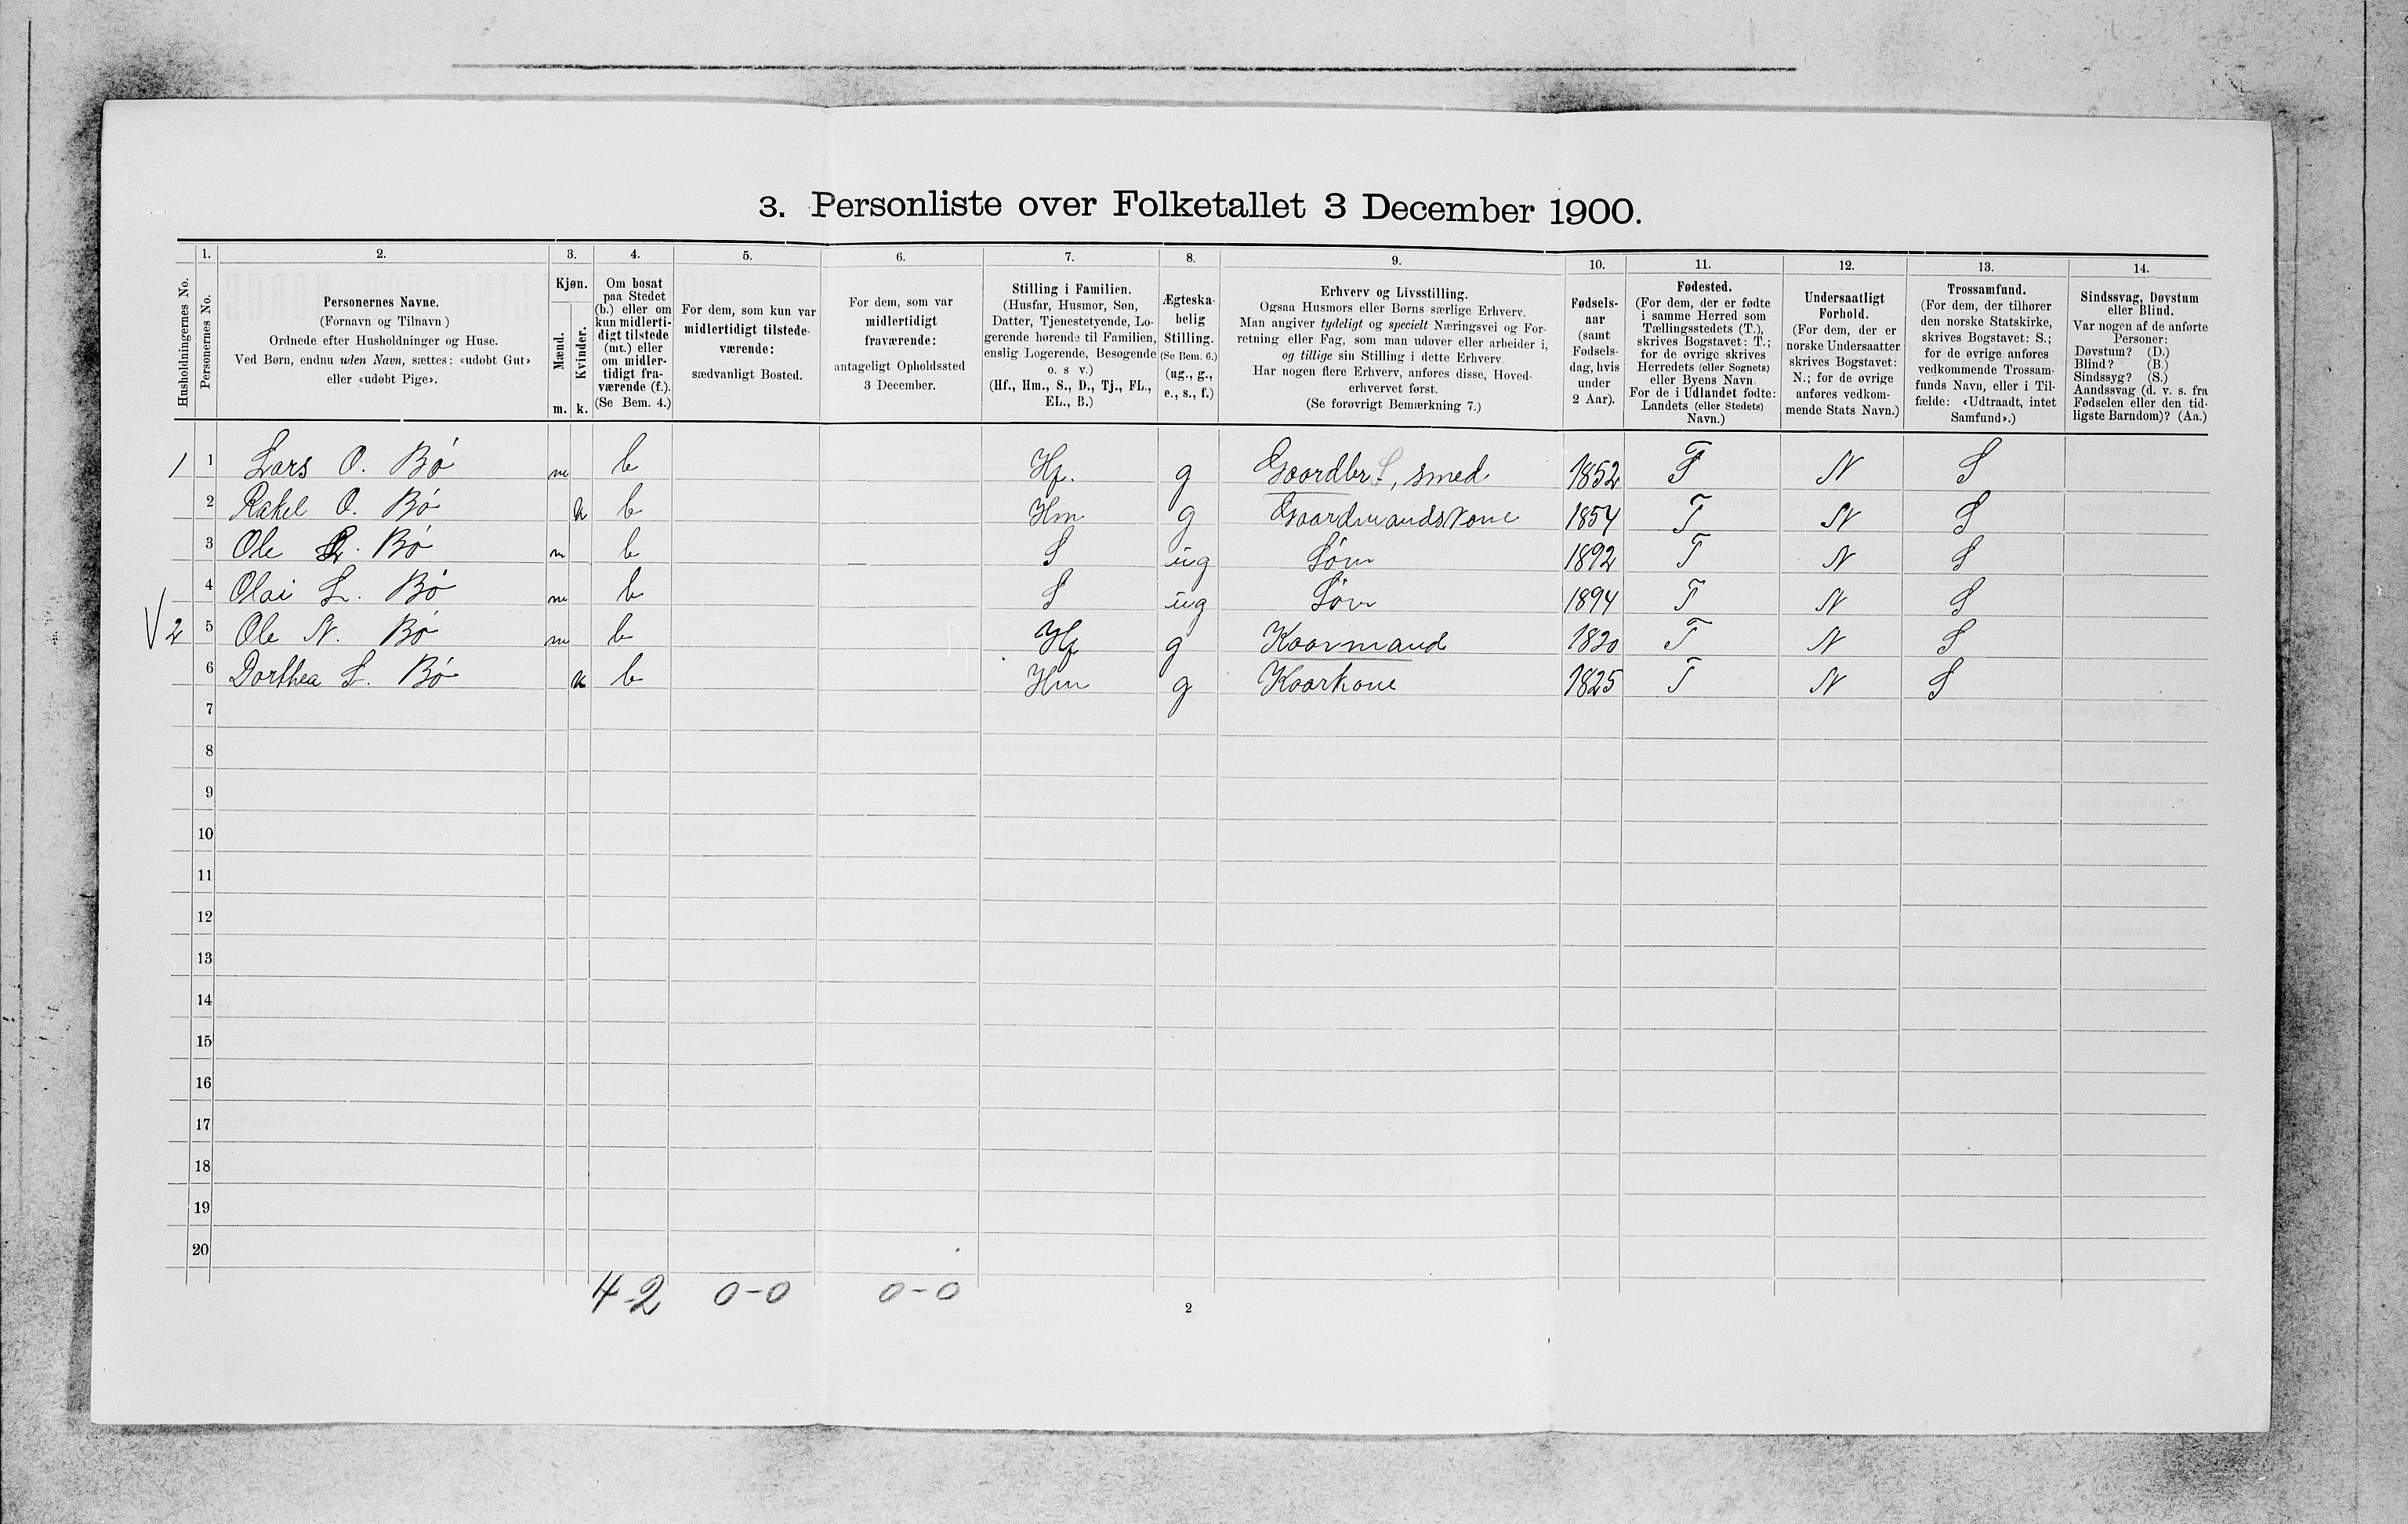 3. Personliste over Folketallet 3 December 1900.
1. 2. 3. 4. 5. 6. 7. 8. 9. 10. 11. 12. 13. 14.
Husholdningernes No.
Personernes No.
Personernes Navne.
(Fornavn og Tilnavn)
Ordnede efter Husholdninger og Huse.
Ved Børn, endnu uden Navn, sættes: «udøbt Gut»
eller «udøbt Pige».
Kjøn.
Mænd.
Kvinder.
m. k.
Om bosat
paa Stedet
(b.) eller om
kun midlerti-
digt tilstede
(mt.) eller
om midler-
tidigt fra-
værende (f.).
(Se Bem. 4.)
For dem, som kun var
midlertidigt tilstede-
værende:
sædvanligt Bosted.
For dem, som var
midlertidigt
fraværende:
antageligt Opholdssted
3 December.
Stilling i Familien.
(Husfar, Husmor, Søn,
Datter, Tjenestetyende, Lo-
gerende hørende til Familien,
enslig Logerende, Besøgende
o. s v.)
(Hf., Hm., S., D., Tj., FL.,
EL., B.)
Ægteska-
belig
Stilling.
(Se Bem. 6.)
(ug., g.,
e., s., f.)
Erhverv og Livsstilling.
Ogsaa Husmors eller Børns særlige Erhverv.
Man angiver tydeligt og specielt Næringsvei og For-
retning eller Fag, som man udøver eller arbeider i,
og tillige sin Stilling i dette Erhverv.
Har nogen flere Erhverv, anføres disse, Hoved-
erhvervet først.
(Se forøvrigt Bemærkning 7.)
Fødsels-
aar
(samt
Fødsels-
dag, hvis
under
2 Aar).
Fødested.
(For dem, der er fødte
i samme Herred som
Tællingsstedets (T.),
skrives Bogstavet: T.;
for de øvrige skrives
Herredets (eller Sognets)
eller Byens Navn.
For de i Udlandet fødte:
Landets (eller Stedets)
Navn.)
Undersaatligt
Forhold.
(For dem, der er
norske Undersaatter
skrives Bogstavet:
N.; for de øvrige
anføres vedkom-
mende Stats Navn.)
Trossamfund.
(For dem, der tilhører
den norske Statskirke,
skrives Bogstavet: S.;
for de øvrige anføres
vedkommende Trossam-
funds Navn, eller i Til-
fælde: «Udtraadt, intet
Samfund».)
Sindssvag, Døvstum
eller Blind.
Var nogen af de anførte
Personer:
Døvstum? (D.)
Blind? (B.)
Sindssyg? (S.)
Aandssvag (d. v. s. fra
Fødselen eller den tid-
ligste Barndom)? (Aa.)
1 1 Lars O. Bø m b Hf. g Gaardbr. S, smed 1852 T N S
2 Rakel O. Bø k b Hm g Gaardmandskone 1854 T N S
3 Ole L. Bø m b S ug Søn 1892 T N S
4 Olai L. Bø m b S ug Søn 1894 T N S
2 5 Ole N. Bø m b Hf g Kaarmand 1820 T N S
6 Dorthea L. Bø k b Hm g Kaarkone 1825 T N S
7
8
9
10
11
12
13
14
15
16
17
18
19
20
4-2 0-0 0-0
2